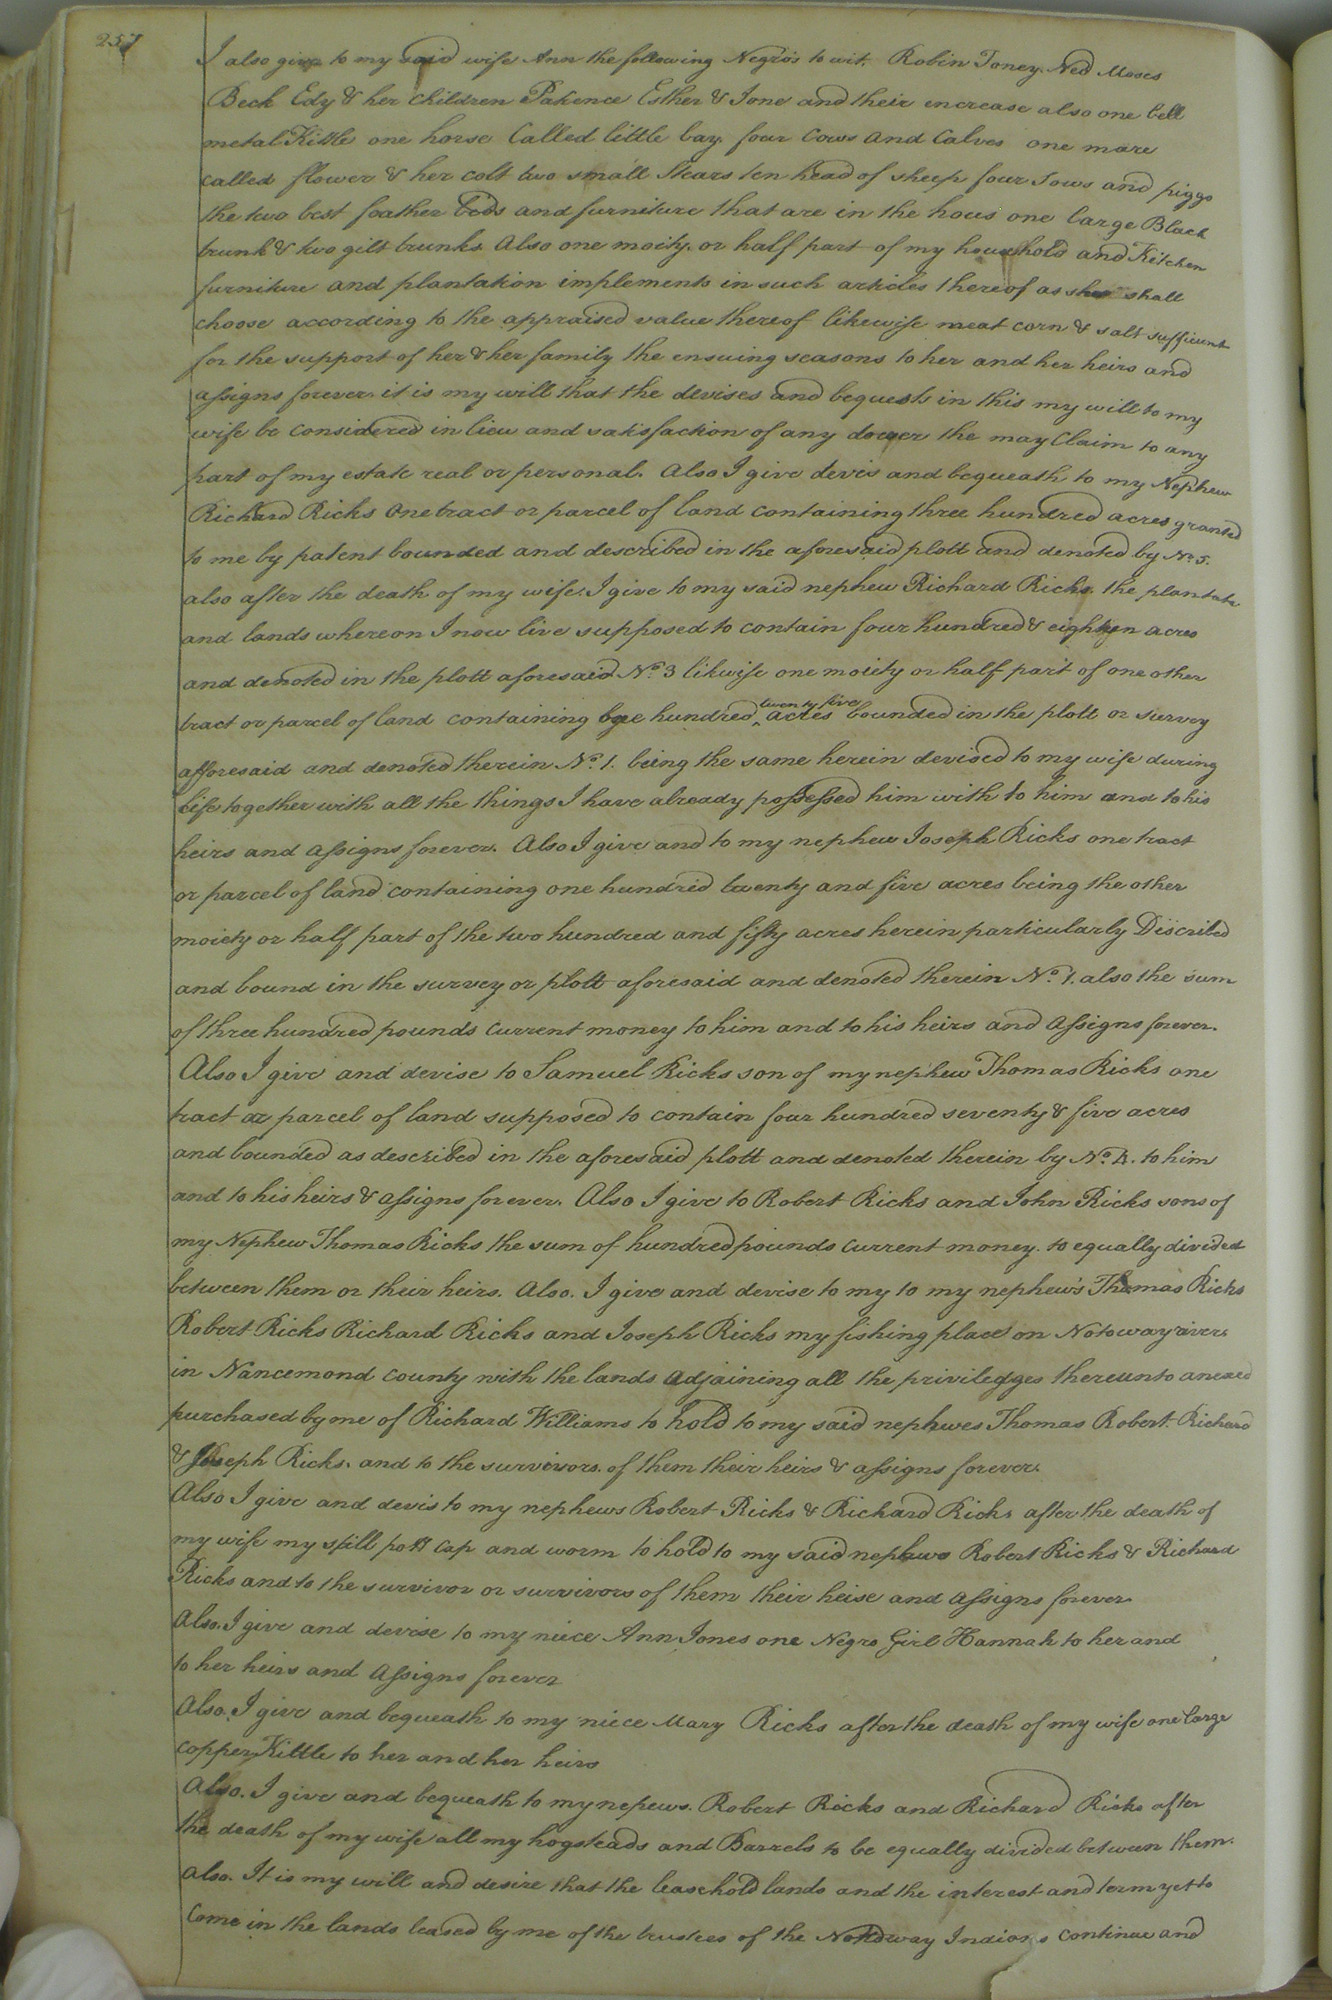 257
I also give to my said wife Ann the following Negro's to wit. Robin Toney Ned Moses
Beck Edy & her children Patience Esther & Jone and their increase also one bell
metal Kittle one horse Called little bay. four Cows and Calves one mare
called flower & her colt two small Stears ten head of sheep four Sows and piggs
the two best feather beds and furniture that are in the hous one large Black
trunk & two gilt trunks. Also one moity. or half part of my household and Kitchen
furniture and plantation implements in such articles thereof as she shall
choose according to the appraised value thereof likewise meat corn & salt sufficient
for the support of her & her family the ensuing seasons to her and her heirs and
assigns forever. it is my will that the devises and bequests in this my will to my
wife be considered in lieu and satisfaction of any dower the may Claim to any
part of my estate real or personal. Also I give devis and bequeath to my Nephew
Richard Ricks One tract or parcel of land containing three hundred acres granted
to me by patent bounded and described in the aforesaid plott and denoted by No. 5.
also after the death of my wife. I give to my said nephew Richard Ricks. the plantatn
and lands whereon I now live supposed to contain four hundred & eighteen acres
and denoted in the plott aforesaid No. 3 likwise one moiety or half part of one other
tract or parcel of land containing one hundred twenty five acres bounded in the plott or survey
afforesaid and denoted therein No. 1. being the same herein devised to my wife during
life together with all the things I have already possessed him with to him and to his
heirs and assigns forever. Also I give and to my nephew Joseph Ricks one tract
or parcel of land containing one hundrid twenty and five acres being the other
moiety or half part of the two hundred and fifty acres herein particularly Discribed
and bound in the survey or plott aforesaid and denoted therein No. 1. also the sum
of three hundred pounds current money to him and to his heirs and Assigns forever.
Also I give and devise to Samuel Ricks son of my nephew Thomas Ricks one
tract or parcel of land supposed to contain four hundred seventy & five acres
and bounded as described in the aforesaid plott and denoted therein by No. 4. to him
and to his heirs & assigns forever. Also I give to Robert Ricks and John Ricks sons of
my Nephew Thomas Ricks the sum of hundred pounds current money. to equally divided
between them or their heirs. Also. I give and devise to my to my nephew's Thomas Ricks
Robert Ricks Richard Ricks and Joseph Ricks my fishing place on Notoway river
in Nancemond county with the lands adjaining all the priviledges thereunto anexed
purchased by me of Richard Williams to hold to my said nephwes Thomas Robert. Richard
& Joseph Ricks. and to the survivors. of them their heirs & assigns forever.
Also I give and devis to my nephews Robert Ricks & Richard Ricks after the death of
my wife my still pott cap and worm to hold to my said nephws Robert Ricks & Richard
Ricks and to the survivor or survivors of them their heise and Assigns forever
Also. I give and devise to my niece Ann Jones one Negro Girl Hannah to her and
to her heirs and Assigns forever
Also. I give and bequeath to my niece Mary Ricks after the death of my wife one large
copper Kittle to her and her heirs
Also. I give and bequeath to my nepews. Robert Ricks and Richard Ricks after
the death of my wife all my hogsteads and Barrels to be equally divided between them.
Also. It is my will and desire that the leasehold lands and the interest and term yet to
Come in the lands leased by me of the trustees of the Nottoway Indians continue and